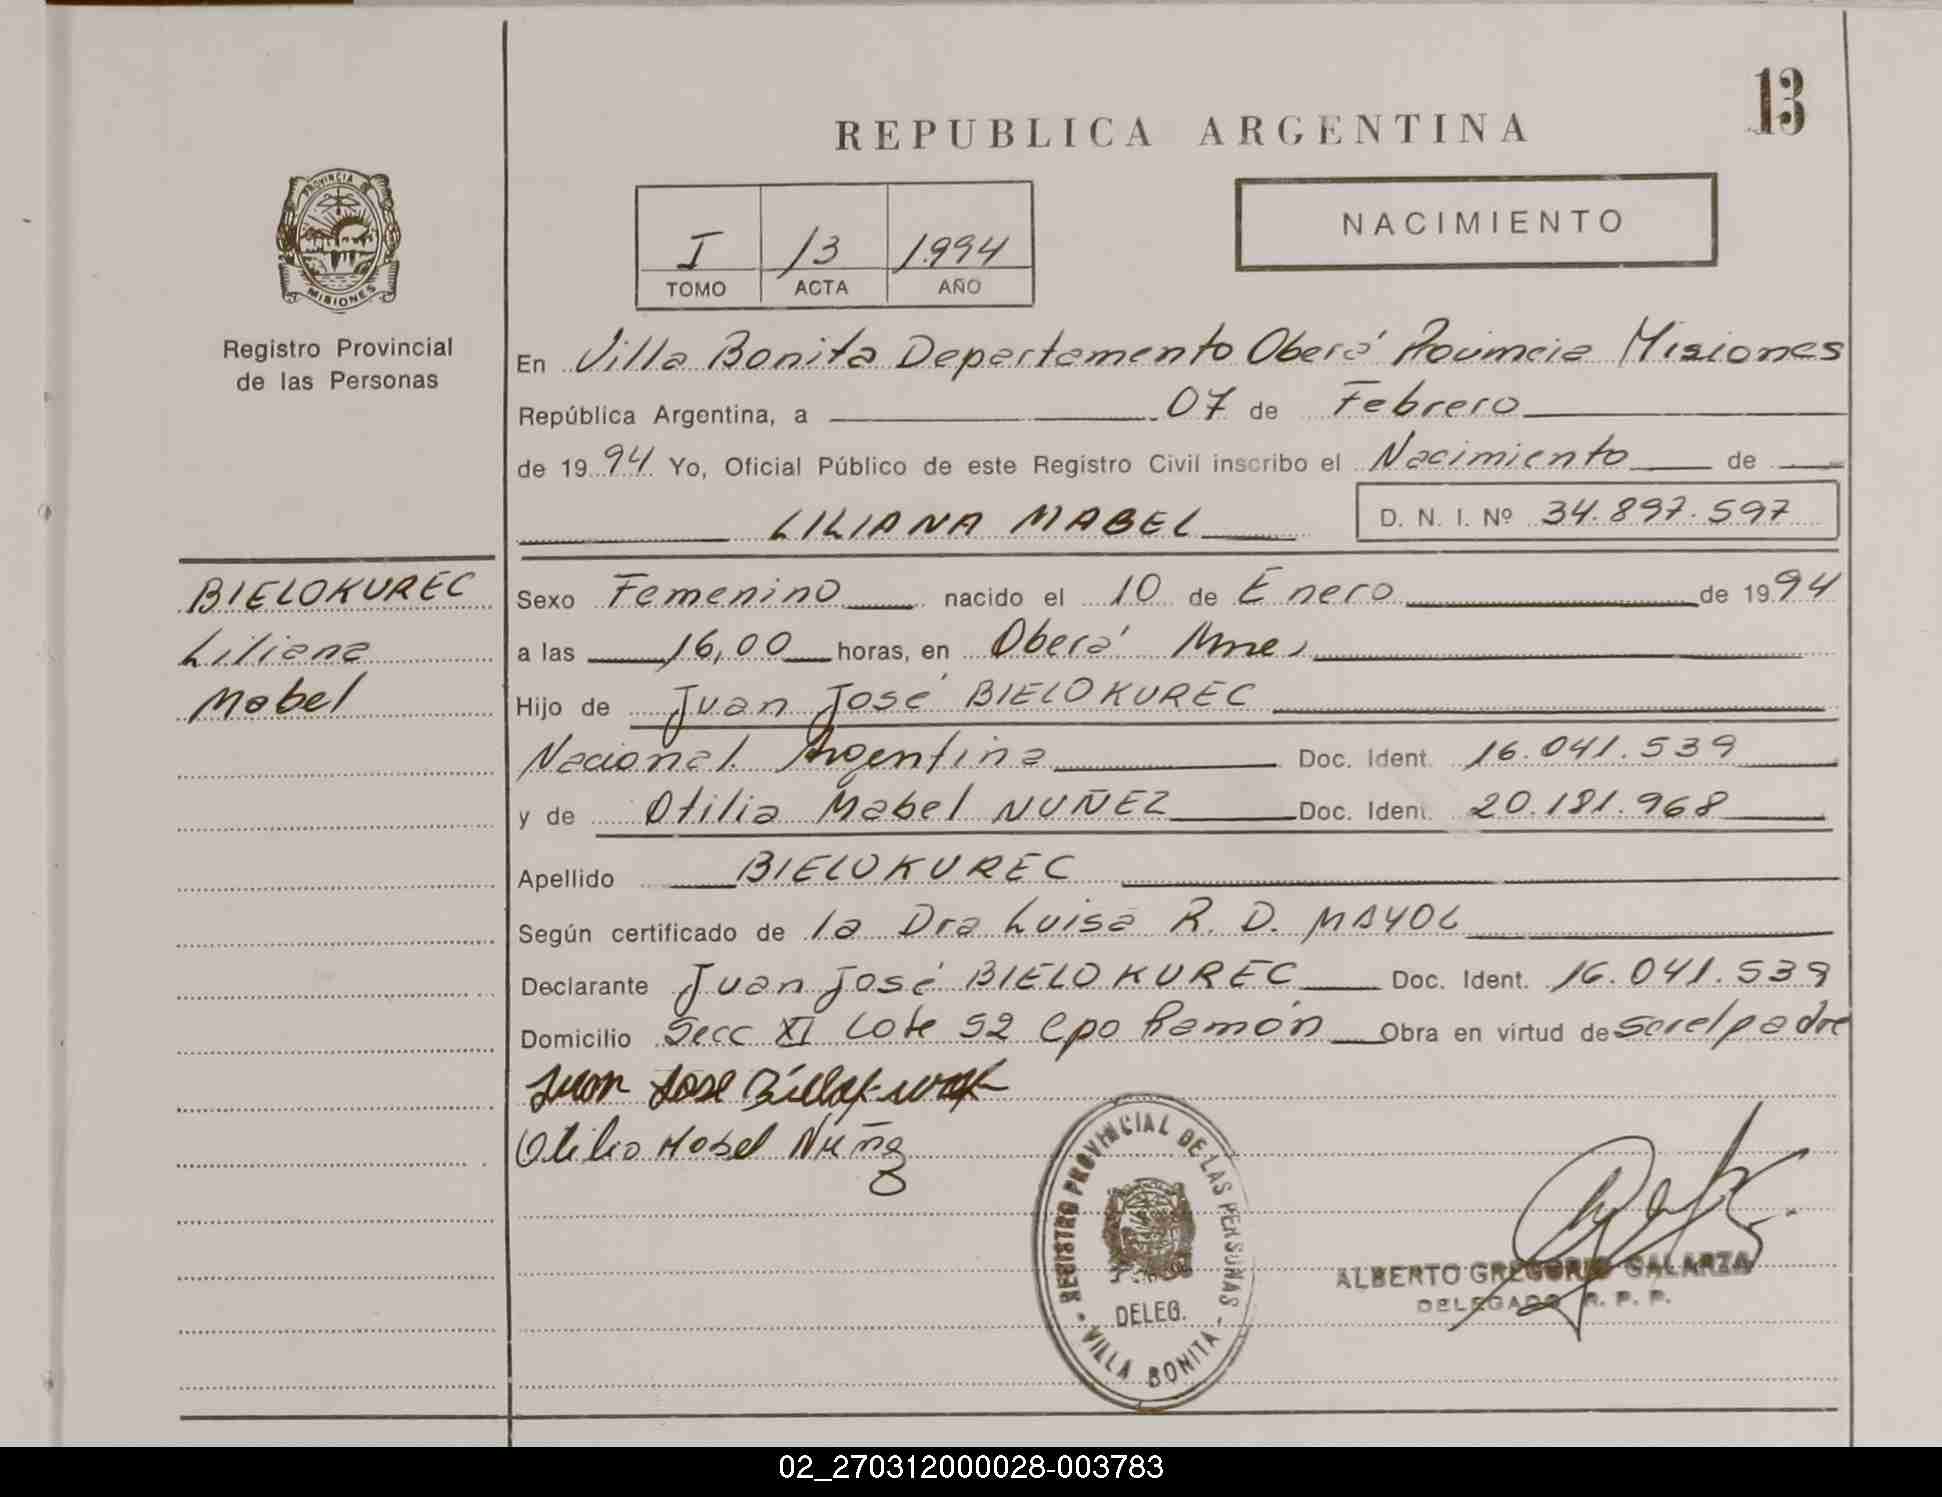 13
REPUBLICA ARGENTINA
PROVINCIA DE
MISIONES
Registro Provincial
de las Personas
I 13 1.994
TOMO ACTA AÑO
NACIMIENTO
En Villa Bonita Departamento Oberá Provincia Misiones
República Argentina, a 07 de Febrero
de 19 94 Yo, Oficial Público de este Registro Civil inscribo el Nacimiento de
LILIANA MABEL D. N. I. Nº 34.897.597
BIELOKUREC
Liliana
Mabel
Sexo Femenino nacido el 10 de Enero de 19 94
a las 16,00 horas, en Oberá Mnes
Hijo de Juan José BIELOKUREC
Nacional. Argentina Doc. Ident. 16.041.539
y de Otilia Mabel NUÑEZ Doc. Ident. 20.181.968
Apellido BIELOKUREC
Según certificado de la Dra Luisa R. D. MAYOL
Declarante Juan José BIELOKUREC Doc. Ident. 16.041.539
Domicilio Secc XI Lote 52 Cpo Ramón Obra en virtud de ser el padre
Juan Jose
Otilia Mabel Nuñez
REGISTRO PROVINCIAL DE LAS PERSONAS
DELEG.
- VILLA BONITA -
ALBERTO GREGORIO GALARZA
DELEGADO R. P. P.
02_270312000028-003783